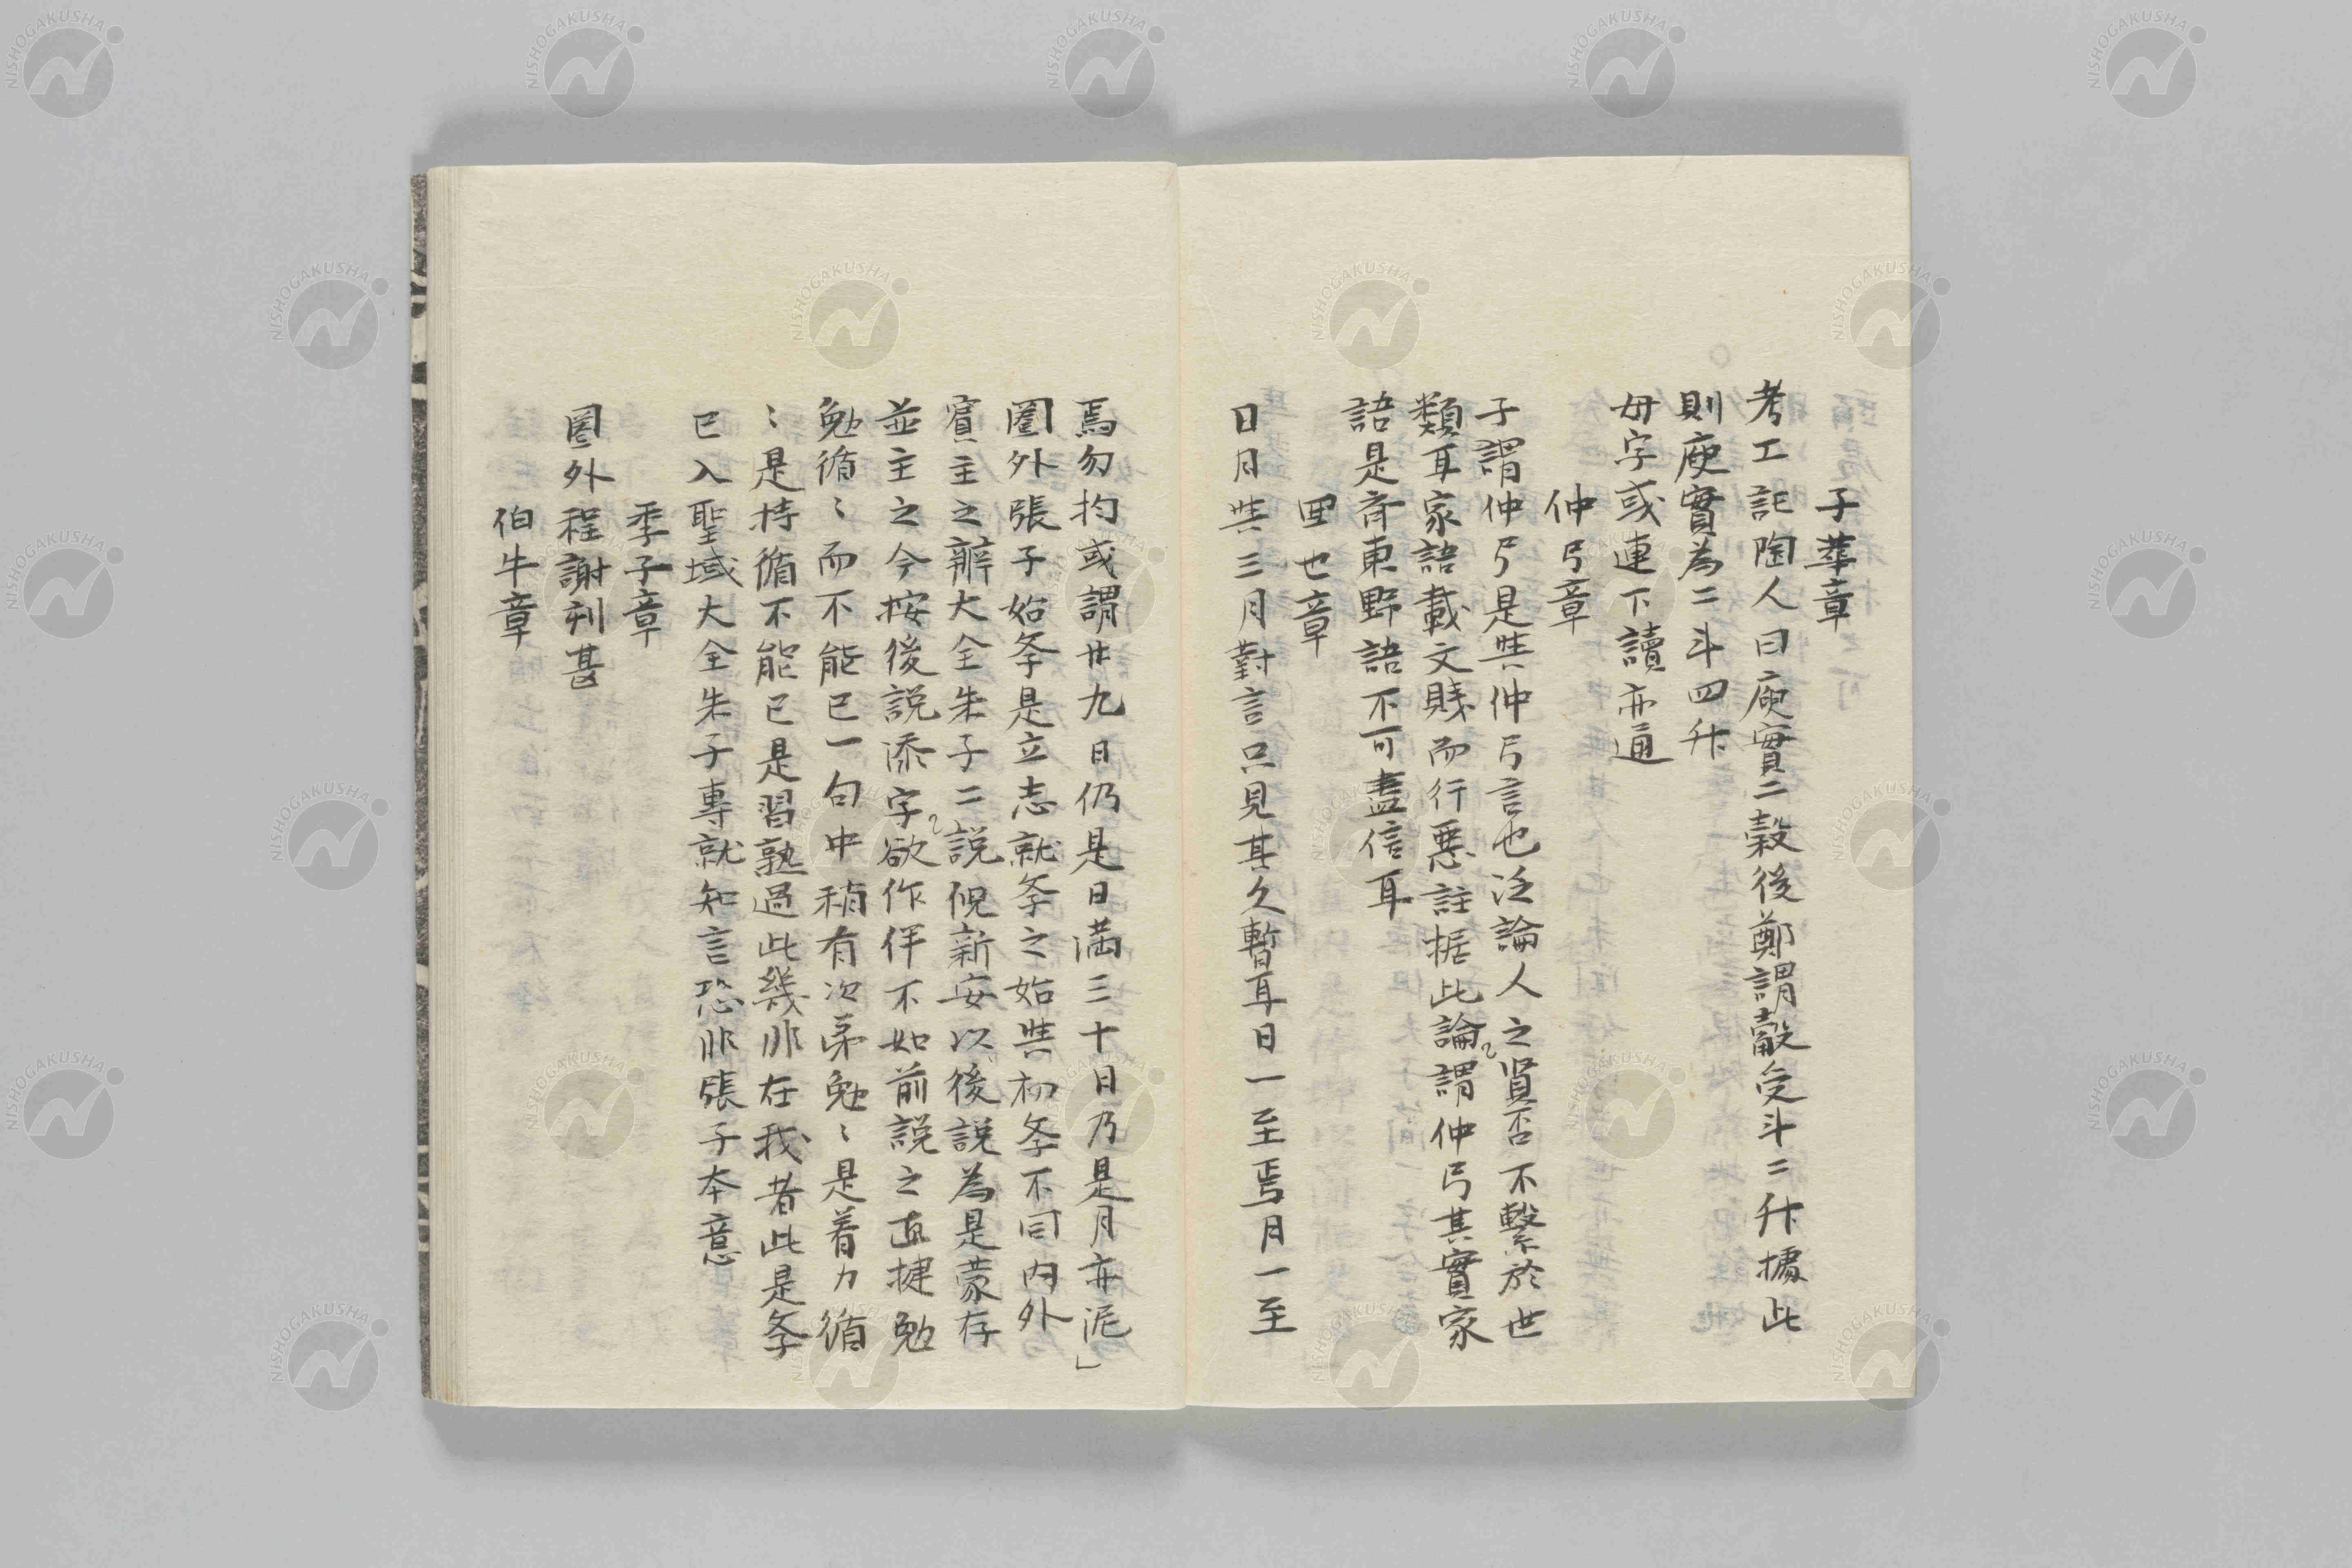 子華章
考工記陶人曰庾實二穀後鄭謂觳受斗二升據此
則庾實為二斗四升
毋字或連下讀亦通
仲弓章
子謂仲弓是與仲弓言也泛論人之賢否不繫於世
類耳家語載文賤而行惡註据此論謂仲弓其實家
語是齊東野語不可盡信耳
回也章
日月與三月對言只見其久暫耳日一至焉月一至
焉勿拘或謂廿九日仍是日滿三十日乃是月亦泥」
圏外張子始条是立志就条之始與初条不同内外
賓主之辨大全朱子二說倪新安以後說為是蒙存
並主之今按後說添字欲作伴不如前說之直捷勉
勉循〻而不能已一句中稍有次第勉〻是着力循
〻是持循不能已是習熟過此幾非在我者此是条
已入聖域大全朱子專就知言恐非張子本意
季子章
圏外程謝刋甚
伯牛章
NISHOGAKUSHA